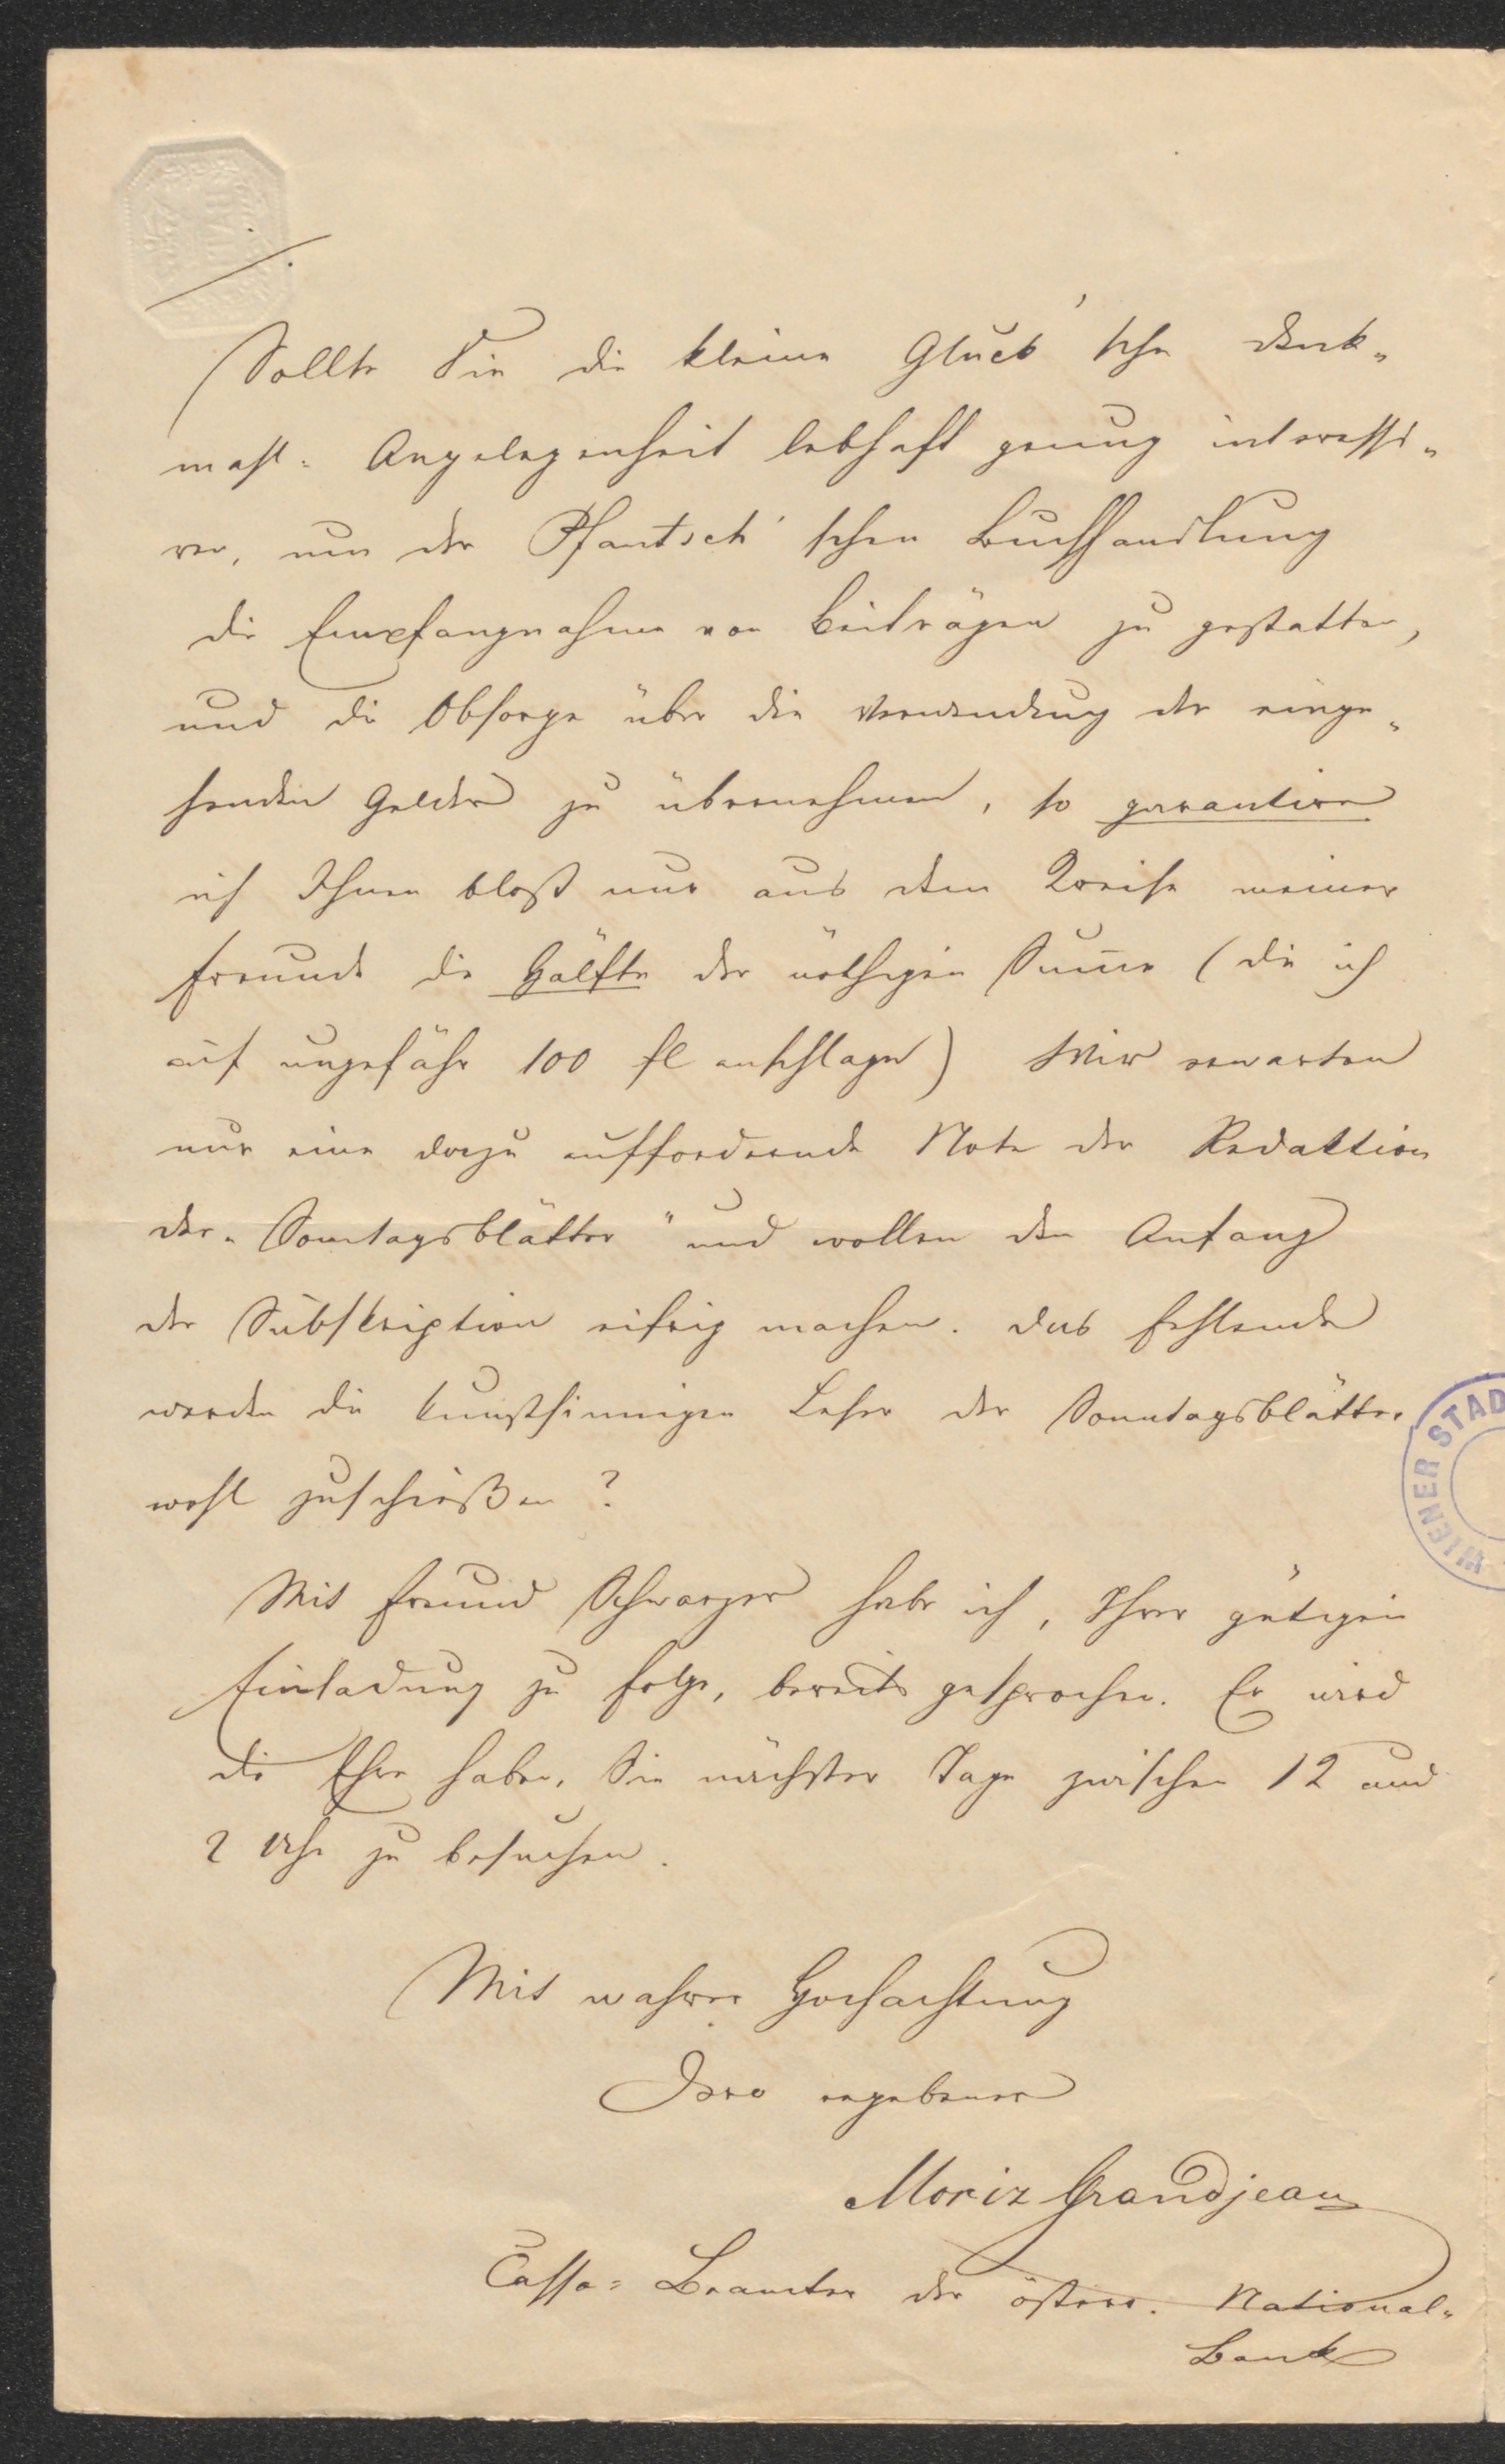 Sollte Sie die kleine Gluck'sche Denk-
mahl: Angelegenheit lebhaft genug interessi-
ren, um der Pfautsch'schen Buchhandlung
die Empfangnahme von Beiträgen zu gestatten,
und die Obsorge über die Verwendung der einge-
henden Gelder zu übernehmen, so garantire
ich Ihnen bloß nur aus dem Kreise meiner
Freunde die Hälfte der nöthigen Sum̄e (die ich
auf ungefähr 100 fl anschlage) Wir erwarten
nur eine dazu auffordernde Note der Redaktion
der "Sontagsblätter" und wollen den Anfang
der Subskription eifrig machen. Das Fehlende
werden die kunstsinnigen Leser der Sonntagsblätter
wohl zuschießen?
Mit Freund Schwarzer habe ich, Ihrer gütigen
Einladung zu Folge, bereits gesprochen. Er wird
die Ehre haben, Sie nächster Tage zwischen 12 und
2 Uhr zu besuchen.
Mit wahrer Hochachtung
Dero ergebener
Moriz Grandjean
Cassa-Beamter der österr. National-
Bank
WIENER STAD